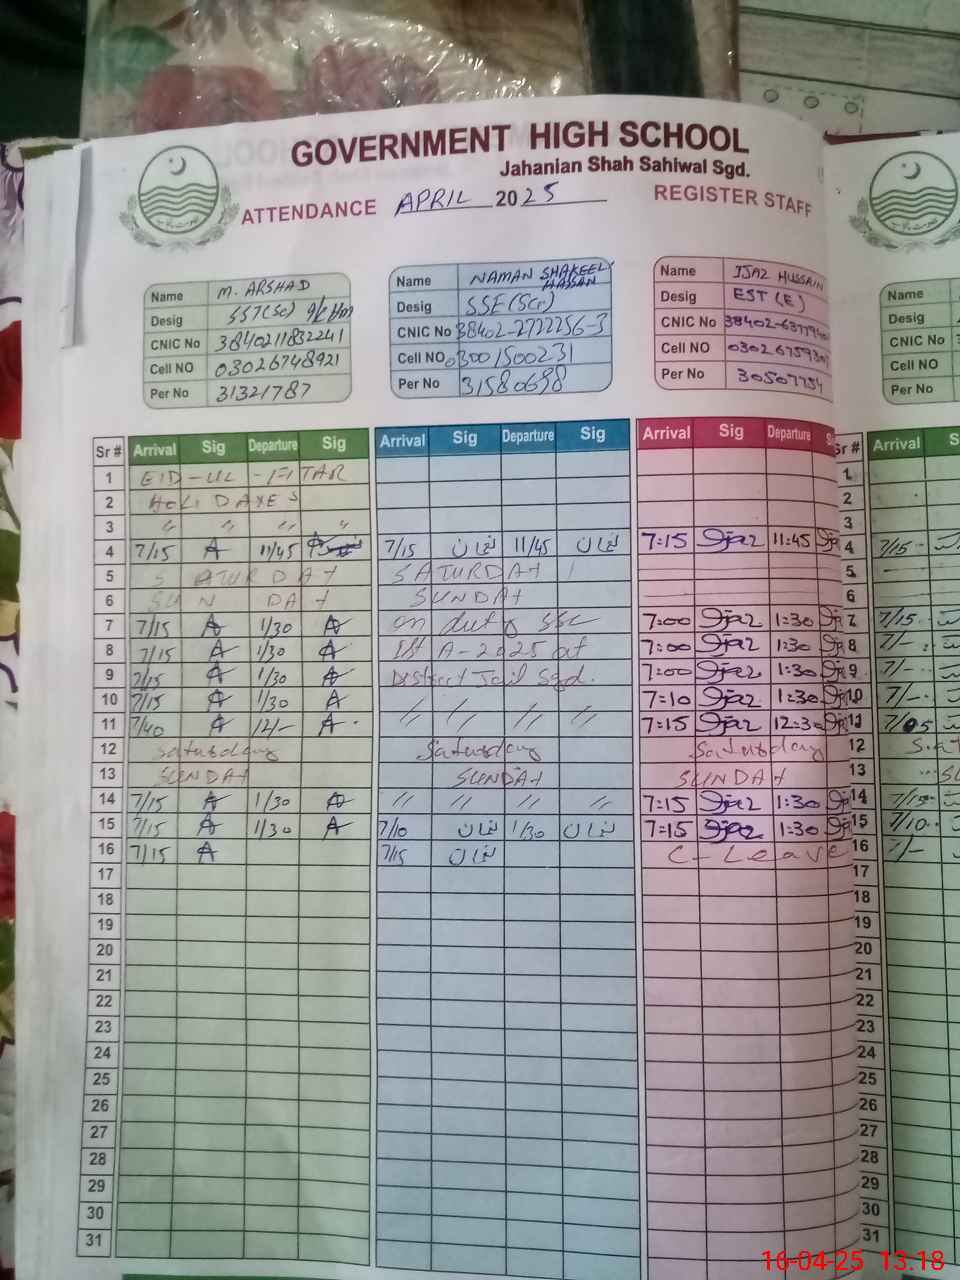 GOVERNMENT HIGH SCHOOL
Jahanian Shah Sahiwal Sgd.
ATTENDANCE APRIL 2025 REGISTER STAFF
Name M. ARSHAD
Desig SST(Sc)
CNIC No 3840211832241
Cell NO 03026748921
Per No 31321787
Name NAMAN SHAKEEL HASSAN
Desig SSE(Sci)
CNIC No 38402-2722256-3
Cell NO 03001500231
Per No 31580698
Name IJAZ HUSSAIN
Desig EST (E)
CNIC No 38402-6377940
Cell NO 0302675930
Per No 30507754
Name
Desig
CNIC No
Cell NO
Per No
Sr # Arrival Sig Departure Sig Arrival Sig Departure Sig Arrival Sig Departure Sr # Arrival
1 EID-UL-FITAR 1
2 HOLIDAYES 2
3 〃 〃 〃 〃 3
4 7/15 A 11/45 7/15 نعمان 11/45 نعمان 7:15 Ijaz 11:45 4 7/15
5 SATURDAY SATURDAY 5
6 SUNDAY SUNDAY 6
7 7/15 A 1/30 A on duty SSC 7:00 Ijaz 1:30 7 7/15
8 7/15 A 1/30 A Ist A-2025 at 7:00 Ijaz 1:30 8 7/-
9 7/15 A 1/30 A District Jail Sgd. 7:00 Ijaz 1:30 9 7/-
10 7/15 A 1/30 A 〃 〃 〃 〃 7:10 Ijaz 1:30 10 7/-
11 7/40 A 12/- A 〃 〃 〃 〃 7:15 Ijaz 12:30 11 7/05
12 Saturday Saturday Saturday 12
13 SUNDAY SUNDAY SUNDAY 13
14 7/15 A 1/30 A 〃 〃 〃 〃 7:15 Ijaz 1:30 14 7/15
15 7/15 A 1/30 A 7/10 نعمان 1/30 نعمان 7:15 Ijaz 1:30 15 7/10
16 7/15 A 7/15 نعمان C-Leave 16 7/-
17 17
18 18
19 19
20 20
21 21
22 22
23 23
24 24
25 25
26 26
27 27
28 28
29 29
30 30
31 31
16-04-25 13.18